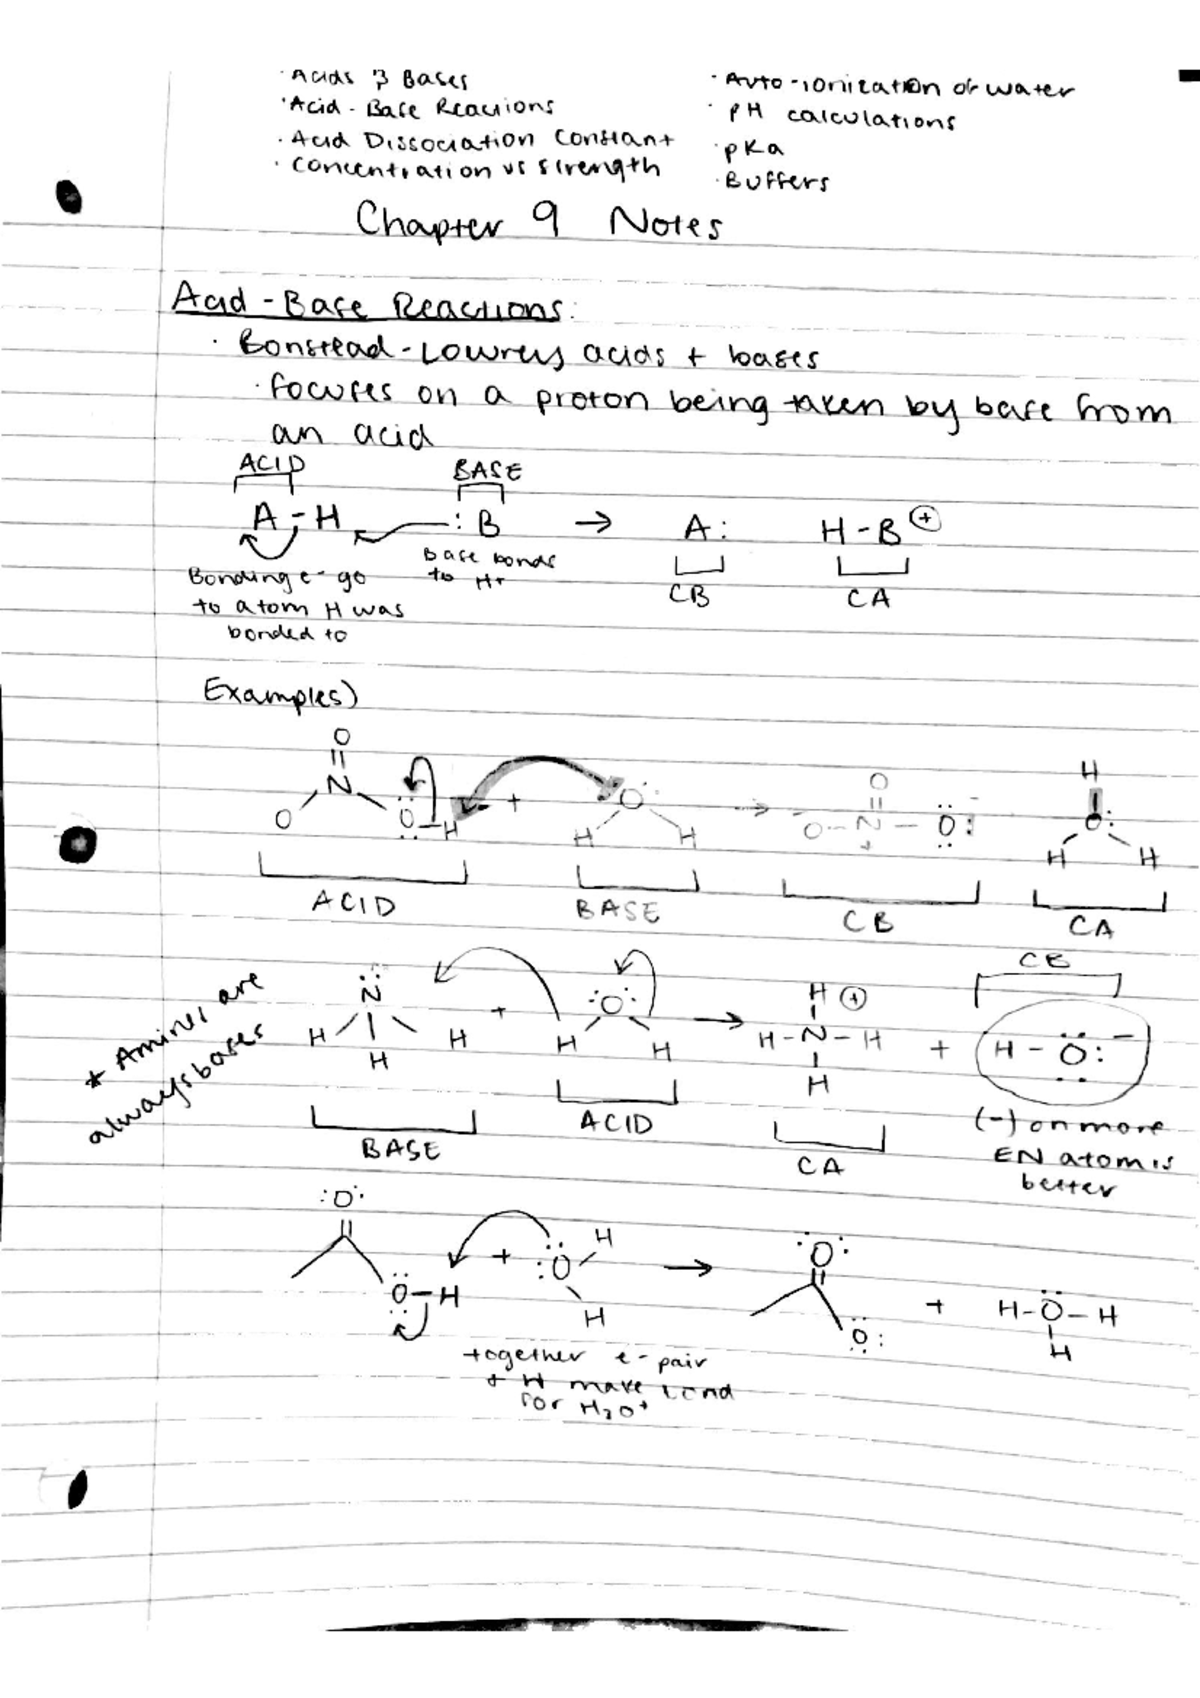 · Acids & Bases
· Acid - Base Reactions
· Acid Dissociation Constant
· Concentration vs strength
· Auto-ionization of water
· pH calculations
· pKa
· Buffers
Chapter 9 Notes
Acid - Base Reactions:
· Bonstead - Lowrey acids + bases
· focuses on a proton being taken by base from
an acid
ACID BASE
A - H :B → A: H - B ⊕
Bonding e- go
to atom H was
bonded to
base bonds
to H+
CB CA
Examples)
O
N
O O-H + O → O - N - O: H
H H + O:
H H
ACID BASE CB CA
* Amines are
always bases
N + :O: → H ⊕ CB
H H H H H H-N-H + H - O: -
H
BASE ACID CA
(-) on more
EN atom is
better
:O: + :O H → :O: + H-O-H
O-H H O: H
together e- pair
+ H make bond
for H3O+